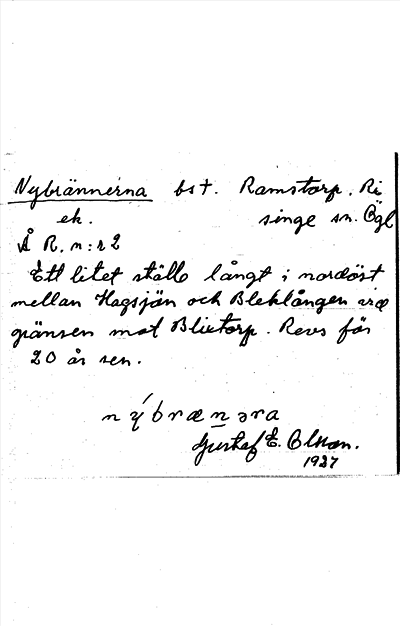 Nybrännerna bst. Ramstorp. Ri
ek. singe sn. Ögl
Å R. n:r 2
Ett litet ställe långt i nordöst
mellan Hagsjön och Bleklången vid
gränsen mot Blixtorp. Revs för
20 år sen.
nýbrænəra
Gustaf E. Olsson.
1927